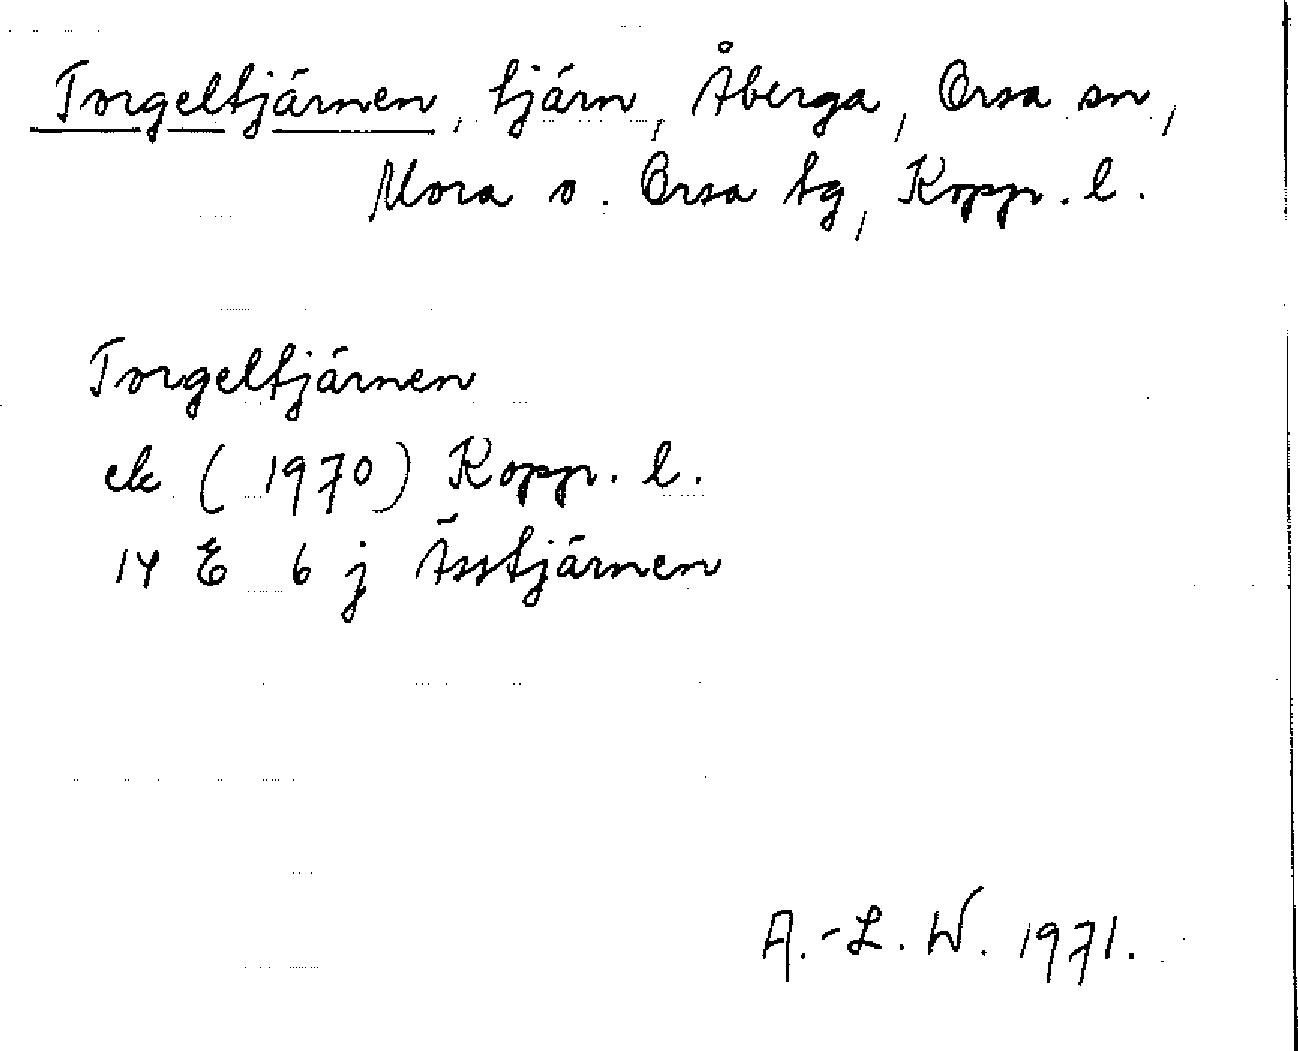 Torgeltjärnen, tjärn, Åberga, Orsa sn,
Mora o. Orsa tg, Kopp. l.
Torgeltjärnen
ek (1970) Kopp. l.
14 E 6 j Ässtjärnen
A.-L. W. 1971.